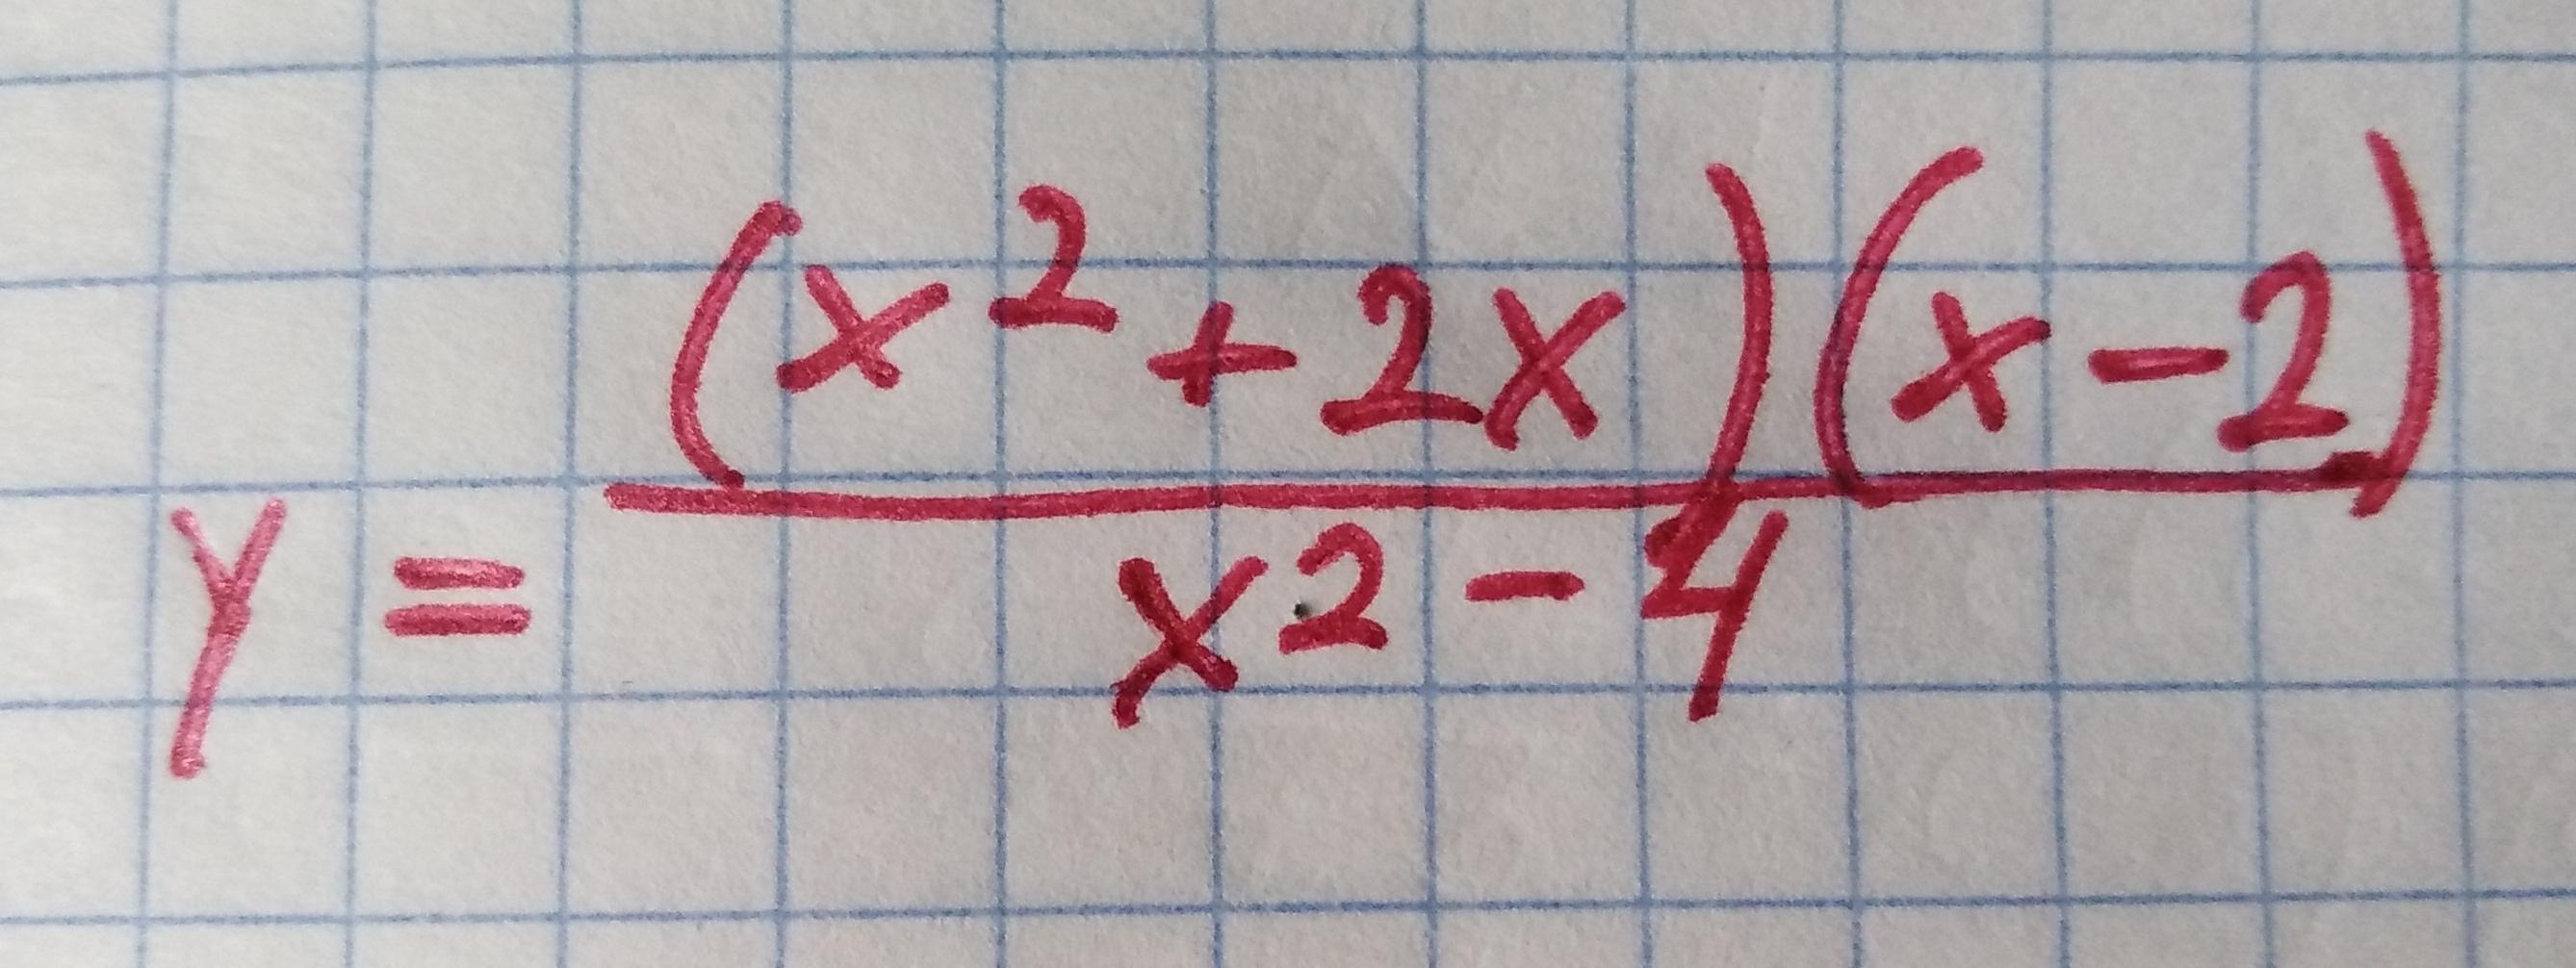 y = \frac{(x^2+2x)(x-2)}{x^2-4}